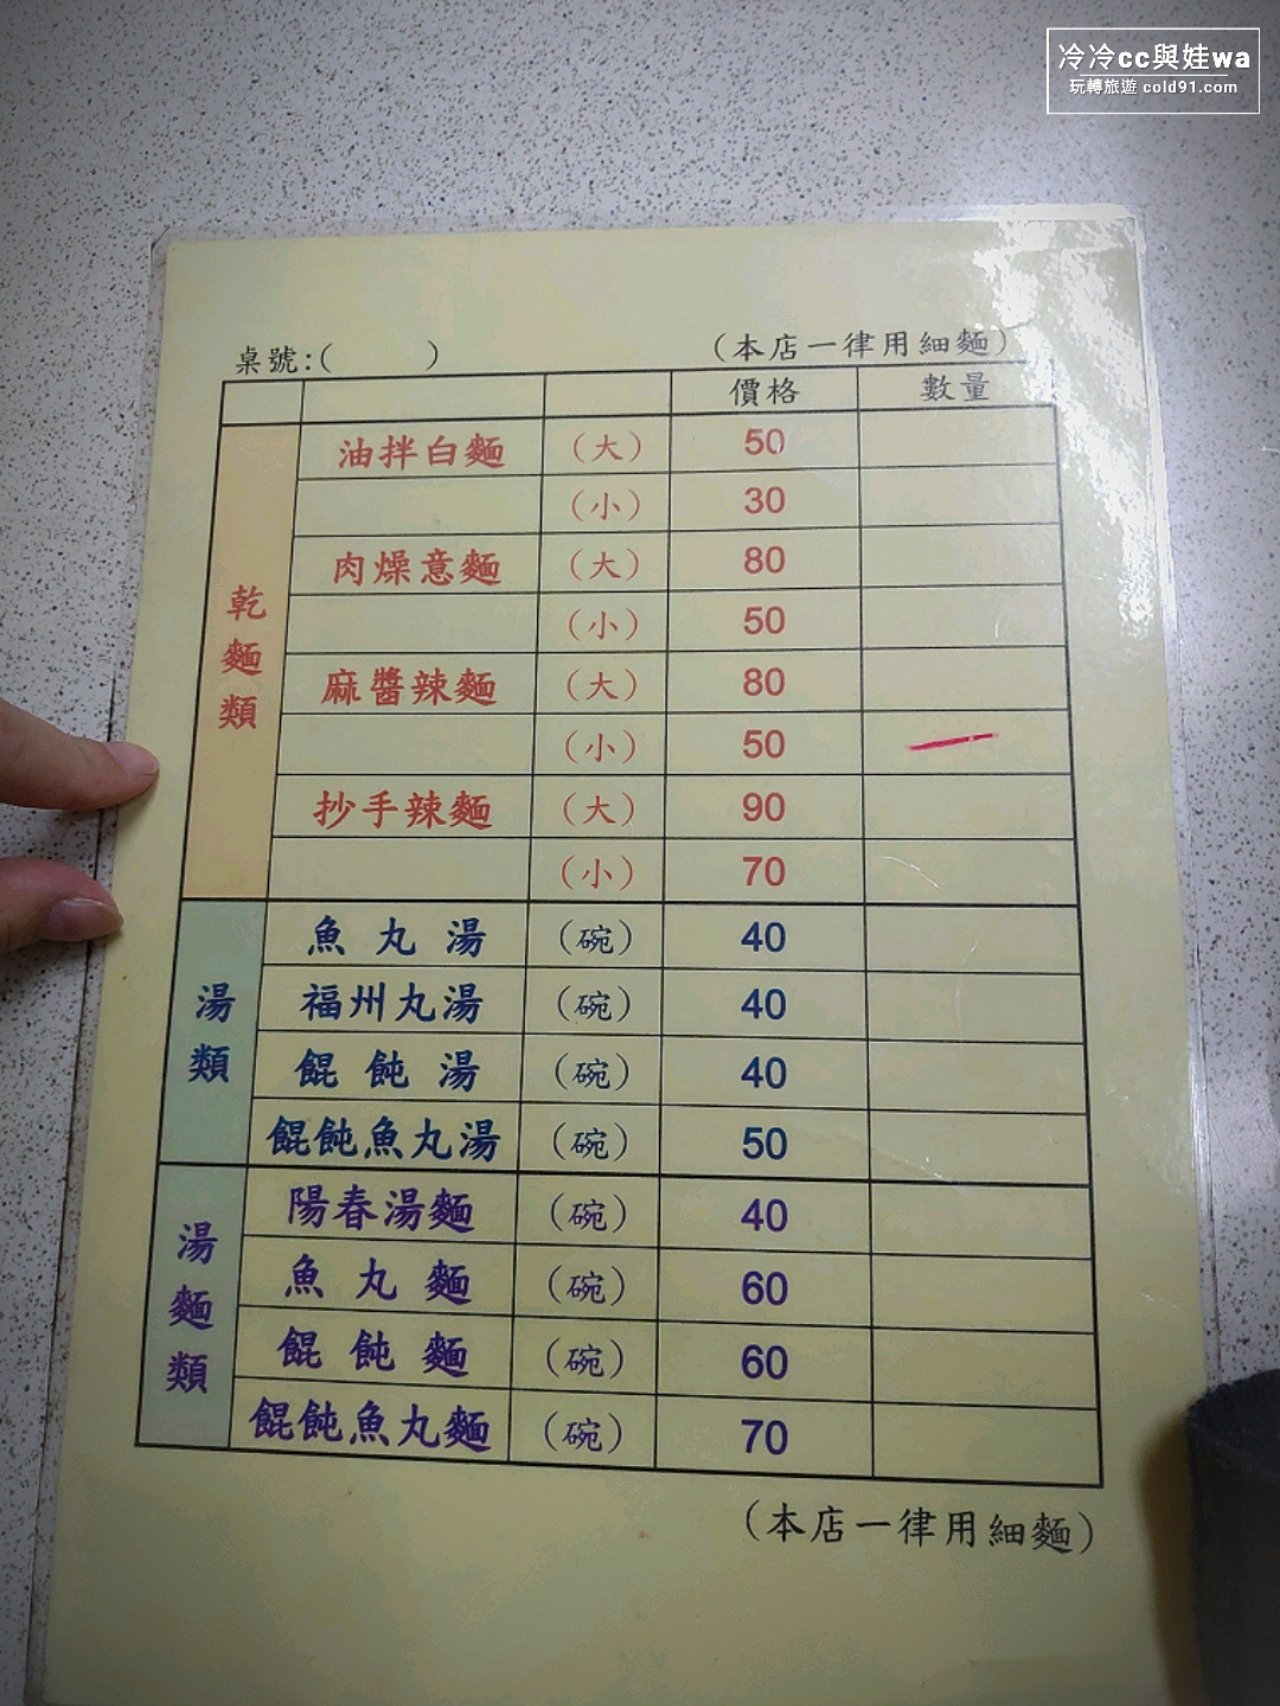 冷冷cc與娃wa
玩轉旅遊 cold91.com
桌號:(　　) (本店一律用細麵)
價格 數量
乾麵類
油拌白麵 (大) 50
(小) 30
肉燥意麵 (大) 80
(小) 50
麻醬辣麵 (大) 80
(小) 50 一
抄手辣麵 (大) 90
(小) 70
湯類
魚丸湯 (碗) 40
福州丸湯 (碗) 40
餛飩湯 (碗) 40
餛飩魚丸湯 (碗) 50
湯麵類
陽春湯麵 (碗) 40
魚丸麵 (碗) 60
餛飩麵 (碗) 60
餛飩魚丸麵 (碗) 70
(本店一律用細麵)